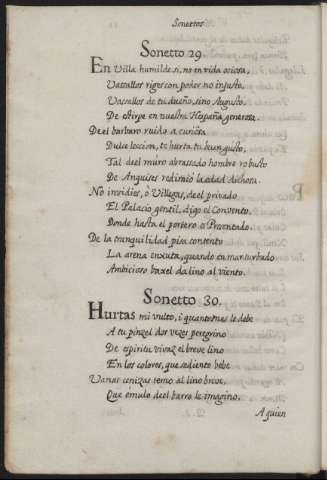 Sonetos
Sonetto 29
En Villa humilde si, no en vida ociosa,
Vasallos riges con poder no injusto,
Vassallos de tu dueño, sino Augusto
De estirpe en nuestra Hespaña generosa.
Del barbaro ruido a curiosa
Dulce leccion, te hurta tu buen gusto,
Tal del muro abrassado hombro robusto
De Anquises redimio la edad dichosa.
No invidies, ò Villegas, de el privado
El Palacio gentil, digo el Convento,
Donde hasta el portero es Presentado
De la tranquilidad pisa contento
La arena enxuta, quando en mar turbado
Ambicioso baxel da lino al viento.
Sonetto 30.
Hurtas mi vulto, i quanto mas le debe
A tu pinzel dos vezes peregrino
De espiritu vivaz el breve lino
En los colores, que sediento bebe
Vanas cenizas temo al lino breve,
Que émulo de el barro le imagino,
A quien